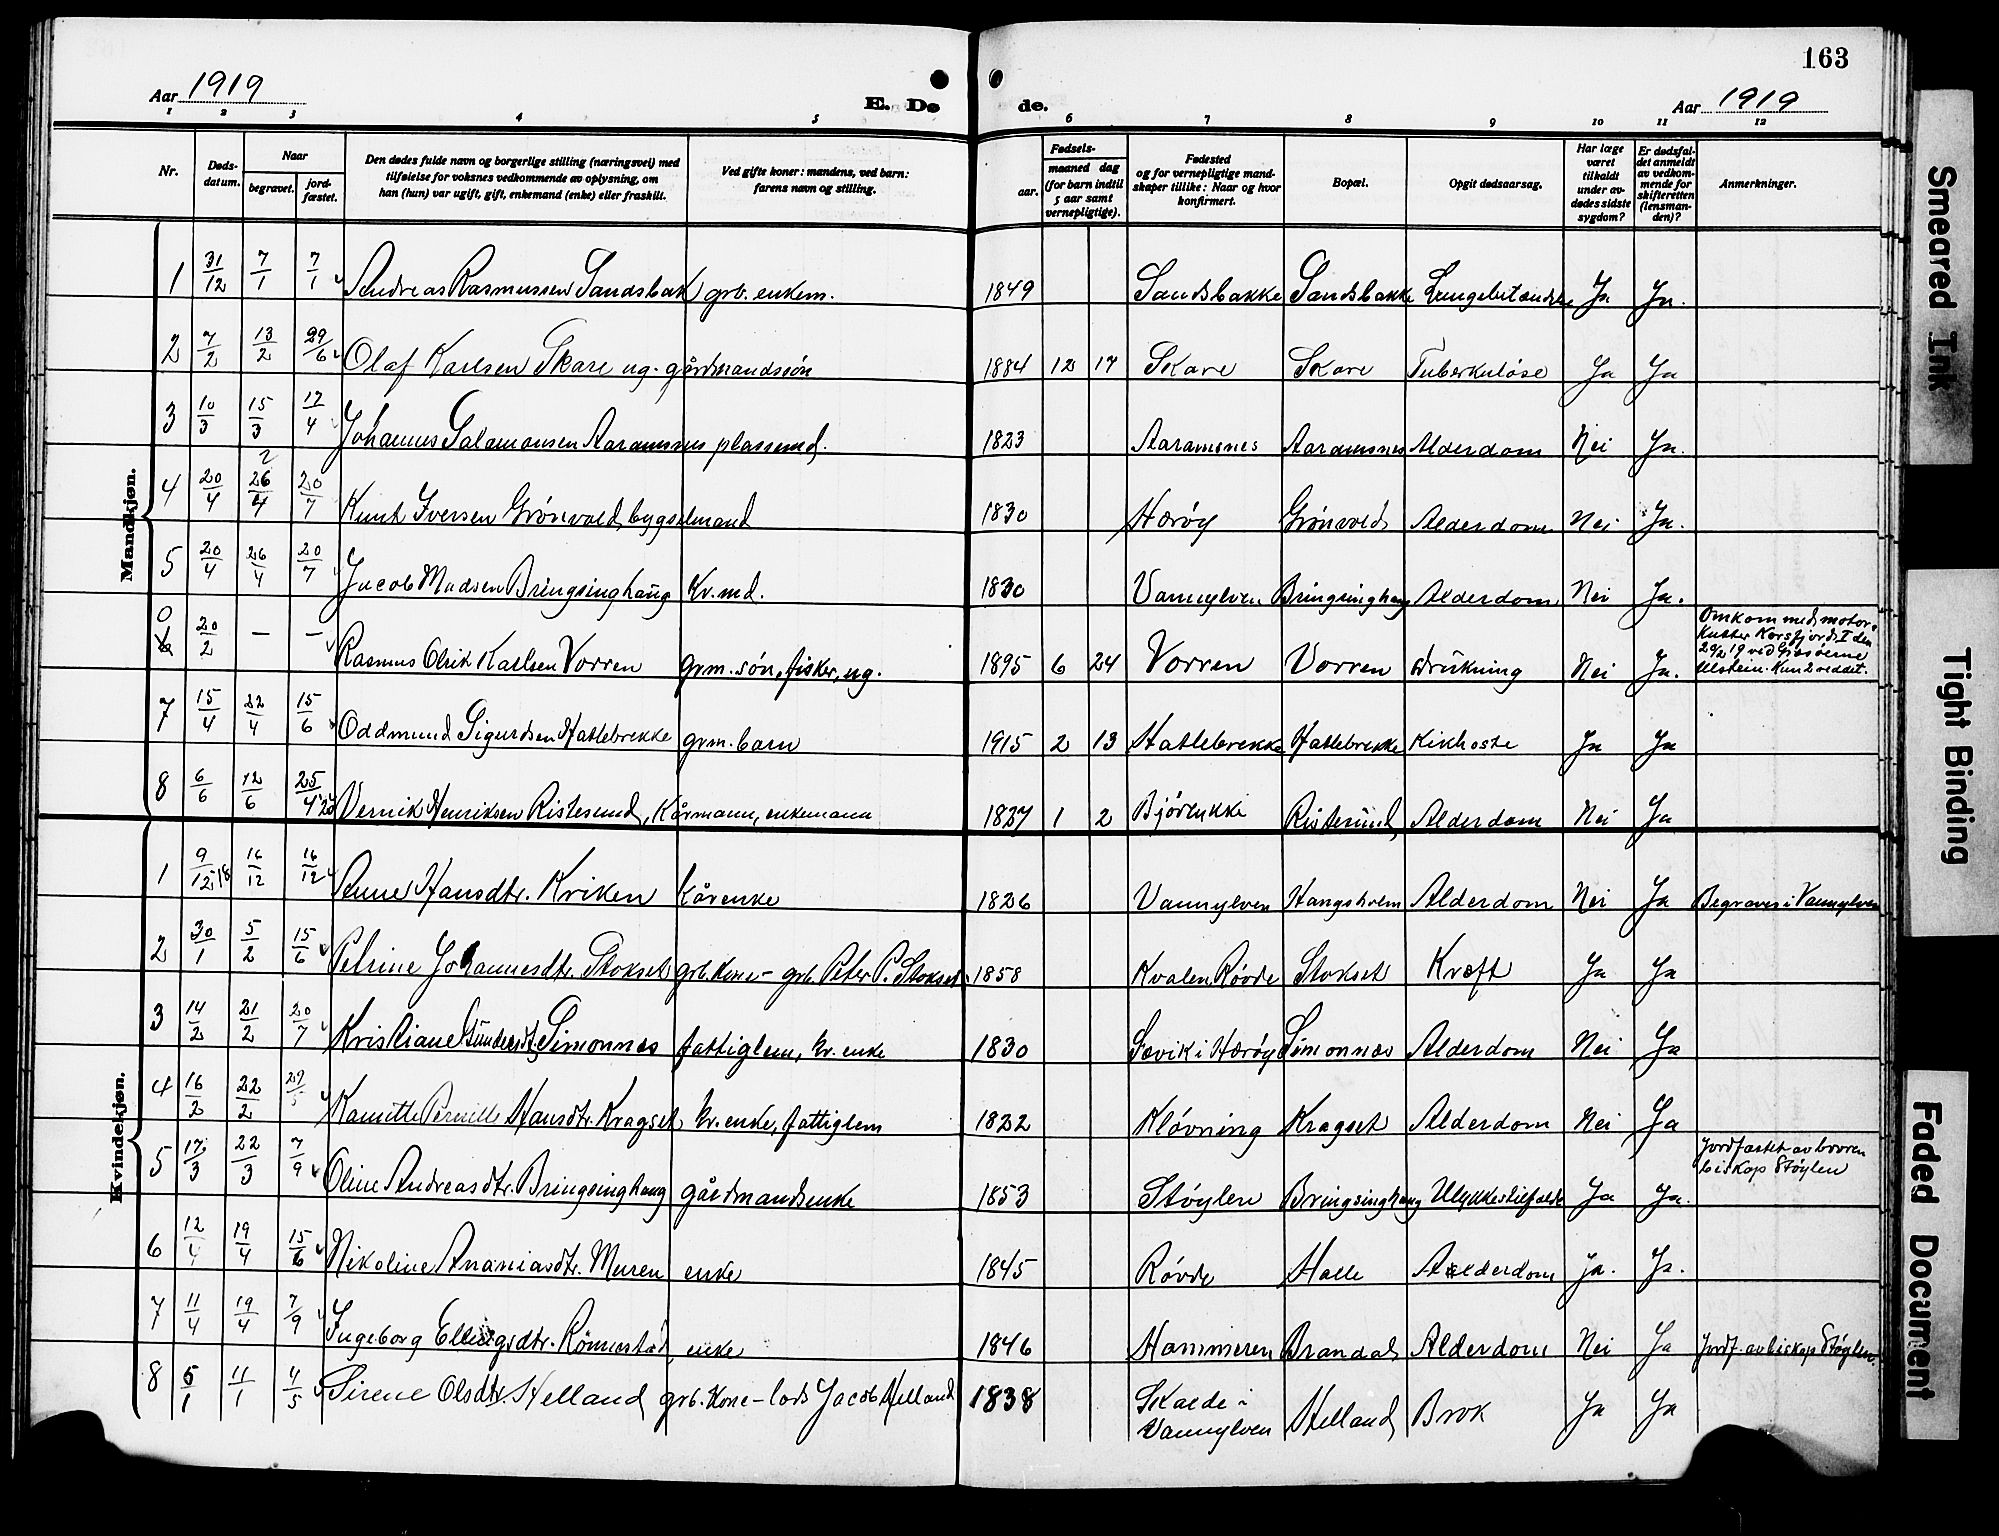 163
Aar 1919
E. Døde.
Aar 1919
1 2 3 4 5 6 7 8 9 10 11 12
Nr.
Døds-
datum.
Naar
begravet.
jord-
fæstet.
Den dødes fulde navn og borgerlige stilling (næringsvei) med
tilføielse for voksnes vedkommende av oplysning, om
han (hun) var ugift, gift, enkemand (enke) eller fraskilt.
Ved gifte koner: mandens, ved barn:
farens navn og stilling.
Fødsels-
aar.
maaned dag
(for barn indtil
5 aar samt
vernepligtige).
Fødested
og for vernepligtige mand-
skaper tillike: Naar og hvor
konfirmert.
Bopæl.
Opgit dødsaarsag.
Har læge
været
tilkaldt
under av-
dødes sidste
sygdom?
Er dødsfal-
det anmeldt
av vedkom-
mende for
skifteretten
(lensman-
den)?
Anmerkninger.
Mandkjøn.
1 31/12 7/1 7/1 Andreas Rasmussen Sandsbak grb. enkem. 1849 Sandsbakke Sandsbakke Lungebetændelse Ja Ja.
2 7/2 13/2 29/6 Olaf Karlsen Skare ug. gårdmandssøn 1884 12 17 Skare Skare Tuberkuløse Ja Ja
3 10/3 15/3 17/4 Johannes Salamonsen Aaramsnes plassemd. 1823 Aaramsnes Aaramsnes Alderdom Nei Ja.
4 20/4 26/4 20/7 Knut Iversen Grønvold, bygselmand 1830 Herøy Grønvold Alderdom Nei Ja.
5 20/4 26/4 20/7 Jacob Madsen Bringsinghaug Kr. md. 1830 Vannylven Bringsinghaug Alderdom Nei Ja.
6 20/2 — — Rasmus Olrik Karlsen Vorren grm. søn, fisker, ug. 1895 6 24 Vorren Vorren drukning Nei Ja. Omkom med motor-
kutter Korsfjord I den
20/2 19 ved Grasøerne
Ulstein. Kun 2 reddet.
7 15/4 22/4 15/6 Oddmund Sigurdsen Hatlebrekke grm. barn 1915 2 13 Hatlebrekke Hatlebrekke Kikhoste Ja Ja
8 6/6 12/6 25/4 20 Vernik Henriksen Ristesund, Kårmann, enkemann 1837 1 2 Ristesund, Alderdom Nei Ja
Kvindekjøn.
1 9/12 18 16/12 16/12 Anne Hansdtr. Kriken kårenke 1826 Vannylven Hangsholm Alderdom Nei Ja Begraves i Vannylven
2 30/1 5/2 15/6 Petrine Johannesdtr. Stokset grb. kone - grb. Peter P. Stokset 1858 Kvalen, Røvde Stokset Kræft Ja Ja
3 14/2 21/2 20/7 Kristiane Simonnes fattiglem, kr. enke 1830 Sævik i Herøy Simonnes Alderdom Nei Ja
4 16/2 22/2 Kanutte Pernille Hansdtr. Kragset, kr. enke, fattiglem 1822 Kløvning Kragset Alderdom Nei Ja
5 17/3 22/3 7/9 Oline Andreasdtr. Bringsinghaug gårdmandsenke 1853 Støylen Bringsinghaug Ulykkestilfælde Ja Ja. Jordfæstet av broren
biskop Støylen
6 12/4 19/4 15/6 Nikoline Ananiasdtr. Muren enke 1845 Røvde Halle Alderdom Ja. Ja.
7 11/4 19/4 7/9 Ingeborg Ellingsdtr. Rønnestad, enke 1846 Hammeren Brandal Alderdom Nei Ja Jordf. av biskop Støylen
8 5/1 11/1 4/5 Sirene Olsdtr. Helland grb. kone - lods Jacob Helland 1838 Skaede i
Vannylven Helland Brok Ja Ja
Smeared Ink
Tight Binding
Faded Document